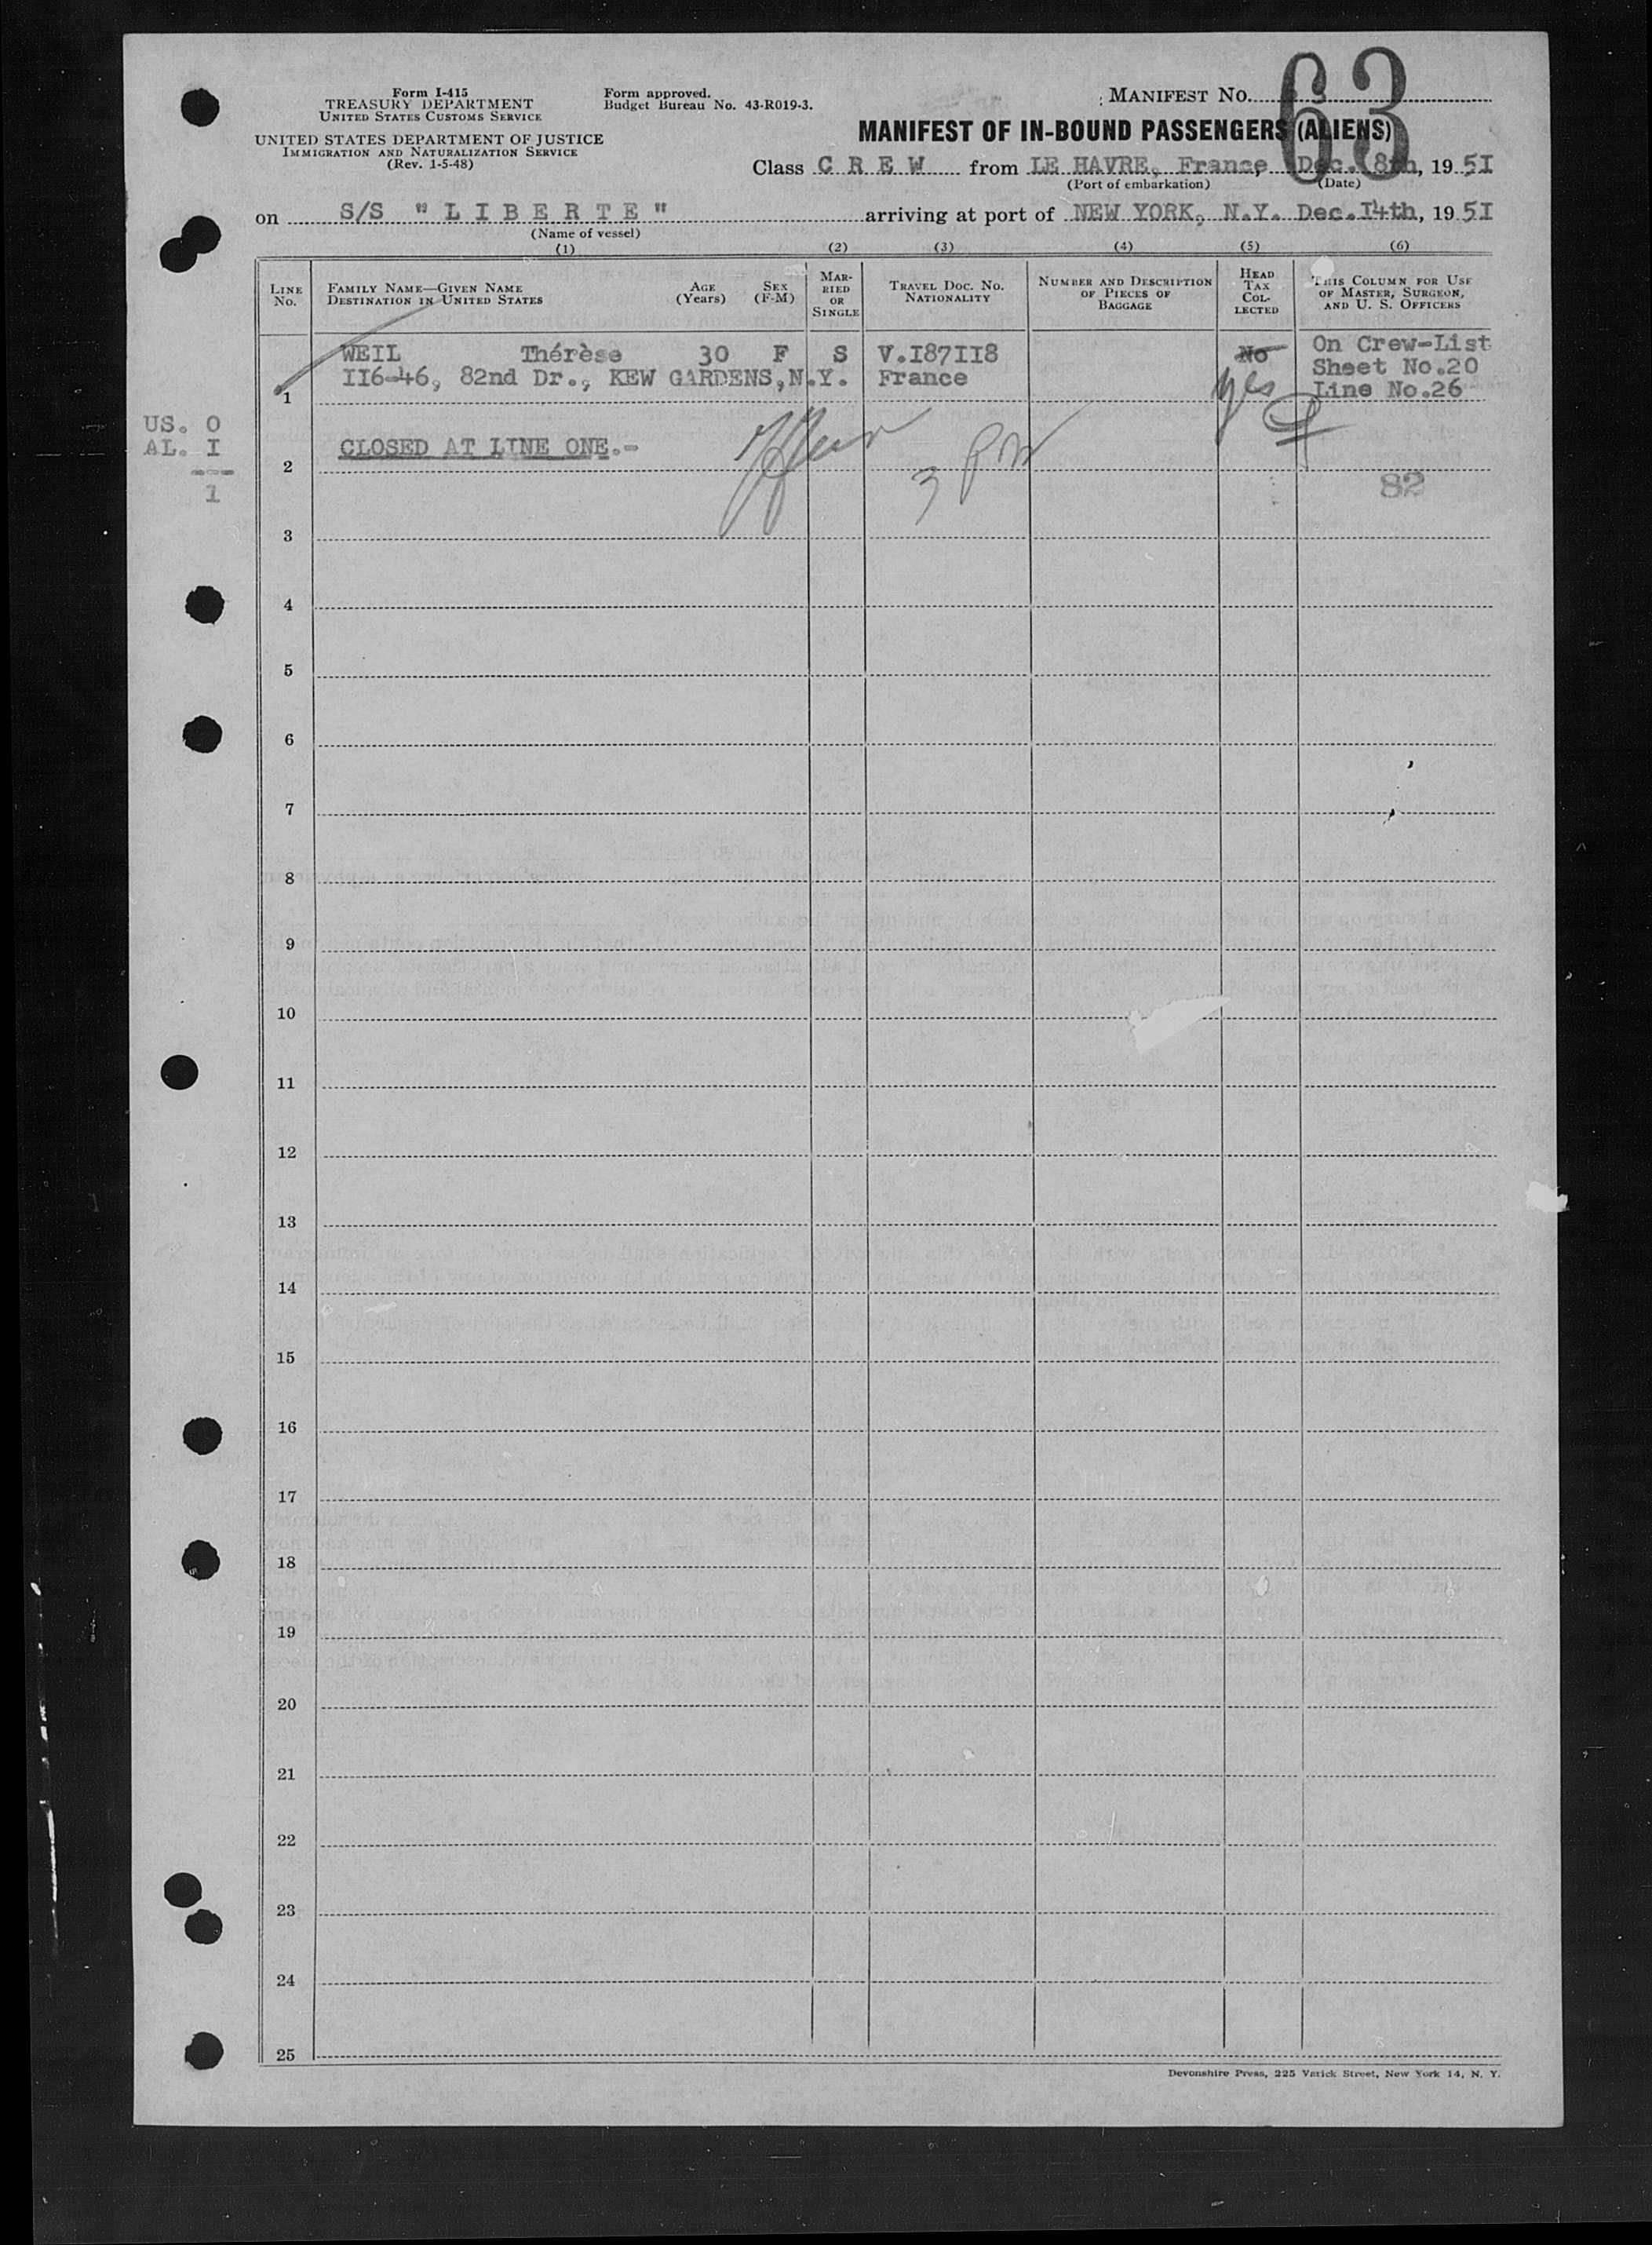 63
Form I-415
TREASURY DEPARTMENT
UNITED STATES CUSTOMS SERVICE
UNITED STATES DEPARTMENT OF JUSTICE
IMMIGRATION AND NATURALIZATION SERVICE
(Rev. 1-5-48)
Form approved.
Budget Bureau No. 43-R019-3.
MANIFEST NO.
MANIFEST OF IN-BOUND PASSENGERS (ALIENS)
Class C R E W from LE HAVRE, France, Dec. 8th, 19 5I
(Port of embarkation) (Date)
on S/S "L I B E R T E" arriving at port of NEW YORK, N.Y. Dec.I4th, 19 5I
(Name of vessel)
(1) (2) (3) (4) (5) (6)
LINE NO.
FAMILY NAME—GIVEN NAME
DESTINATION IN UNITED STATES
AGE (Years)
SEX (F-M)
MARRIED OR SINGLE
TRAVEL DOC. NO.
NATIONALITY
NUMBER AND DESCRIPTION OF PIECES OF BAGGAGE
HEAD TAX COLLECTED
THIS COLUMN FOR USE OF MASTER, SURGEON, AND U. S. OFFICERS
WEIL Thérèse 30 F S V.I87II8 No On Crew-List
Sheet No.20
II6-46, 82nd Dr., KEW GARDENS,N.Y. France yes Line No.26
1
US. 0
AL. I
---
1
CLOSED AT LINE ONE.-
3 PM
2
82
3
4
5
6
7
8
9
10
11
12
13
14
15
16
17
18
19
20
21
22
23
24
25
Devonshire Press, 225 Varick Street, New York 14, N. Y.